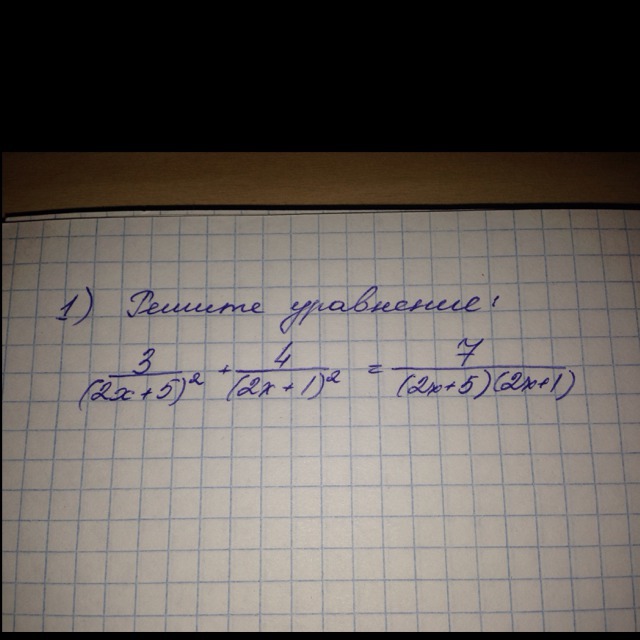 1) Решите уравнение:
3/(2x+5)² + 4/(2x+1)² = 7/(2x+5)(2x+1)